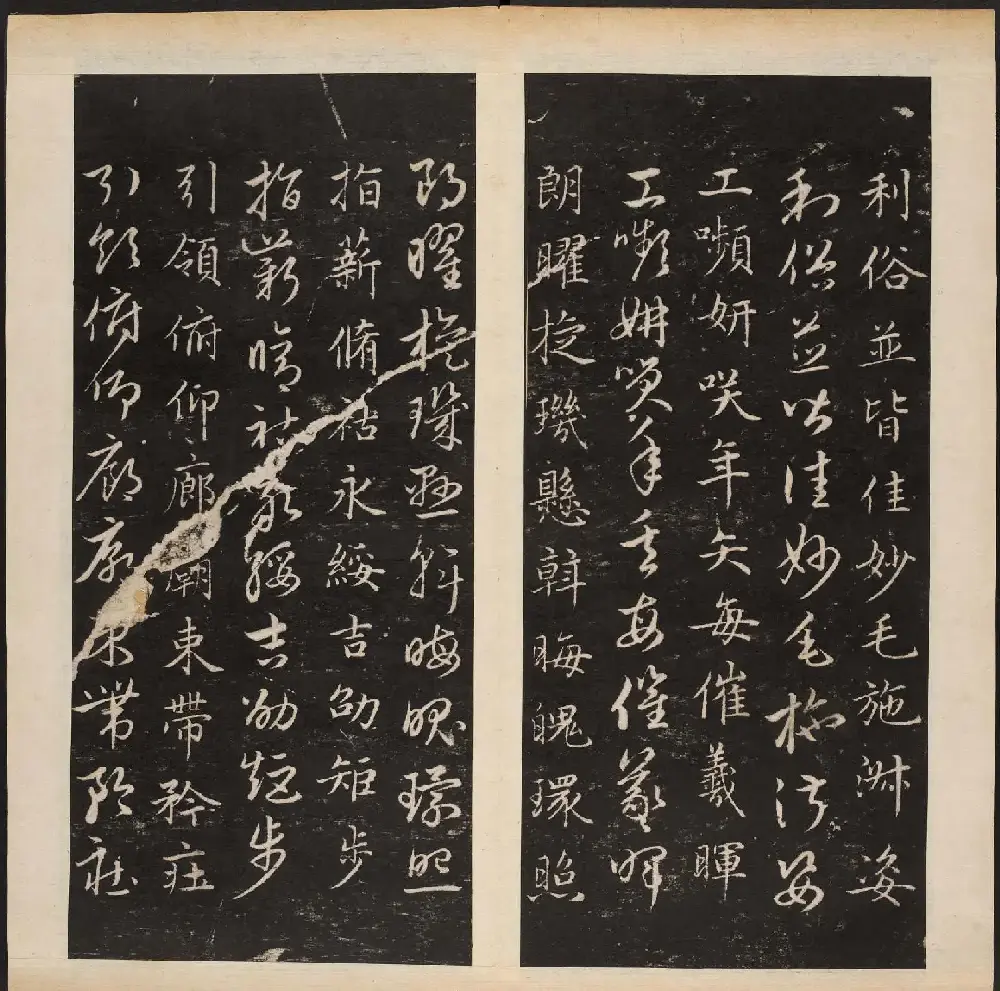 利俗並皆佳妙毛施淑姿
利俗並皆佳妙毛施淑姿
工嚬妍咲年矢每催羲暉
工嚬妍咲年矢每催羲暉
朗曜琁璣懸斡晦魄環照
朗曜琁璣懸斡晦魄環照
指薪脩祜永綏吉劭矩步
指薪脩祜永綏吉劭矩步
引領俯仰廊廟束帶矜莊
引領俯仰廊廟束帶矜莊